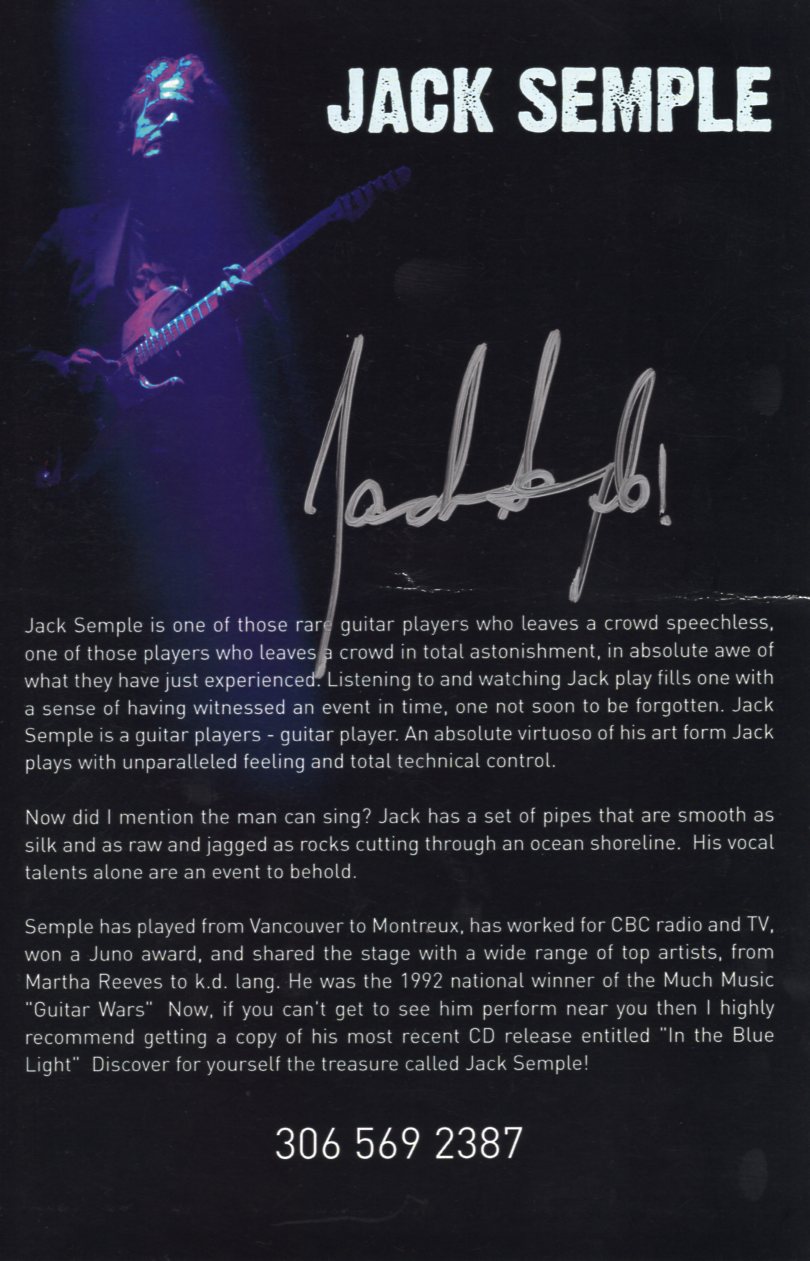 JACK SEMPLE
Jack Semple!
Jack Semple is one of those rare guitar players who leaves a crowd speechless,
one of those players who leaves a crowd in total astonishment, in absolute awe of
what they have just experienced. Listening to and watching Jack play fills one with
a sense of having witnessed an event in time, one not soon to be forgotten. Jack
Semple is a guitar players - guitar player. An absolute virtuoso of his art form Jack
plays with unparalleled feeling and total technical control.
Now did I mention the man can sing? Jack has a set of pipes that are smooth as
silk and as raw and jagged as rocks cutting through an ocean shoreline. His vocal
talents alone are an event to behold.
Semple has played from Vancouver to Montreux, has worked for CBC radio and TV,
won a Juno award, and shared the stage with a wide range of top artists, from
Martha Reeves to k.d. lang. He was the 1992 national winner of the Much Music
"Guitar Wars" Now, if you can't get to see him perform near you then I highly
recommend getting a copy of his most recent CD release entitled "In the Blue
Light" Discover for yourself the treasure called Jack Semple!
306 569 2387